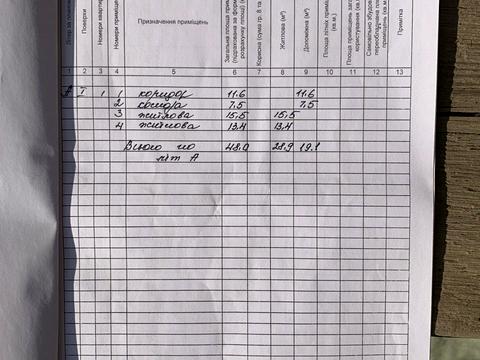 Літер за планом
Поверхи
Номери квартир
Номери приміщень
Призначення приміщень
Загальна площа
(підрахована за
розрахунку площі)
Корисна (сума гр. 8 та
Житлова (м²)
Допоміжна (м²)
Площа літніх
(кв.м.)
Площа приміщень
користування (кв.м.)
Самовільно
приміщень (кв.м.)
Примітка
1 2 3 4 5 6 7 8 9 10 11 12 13
A I 1 1 коридор 11.6 11.6
2 7.5 7.5
3 житлова 15.5 15.5
4 житлова 13.4 13.4
Всього по 48.0 28.9 19.1
літ А